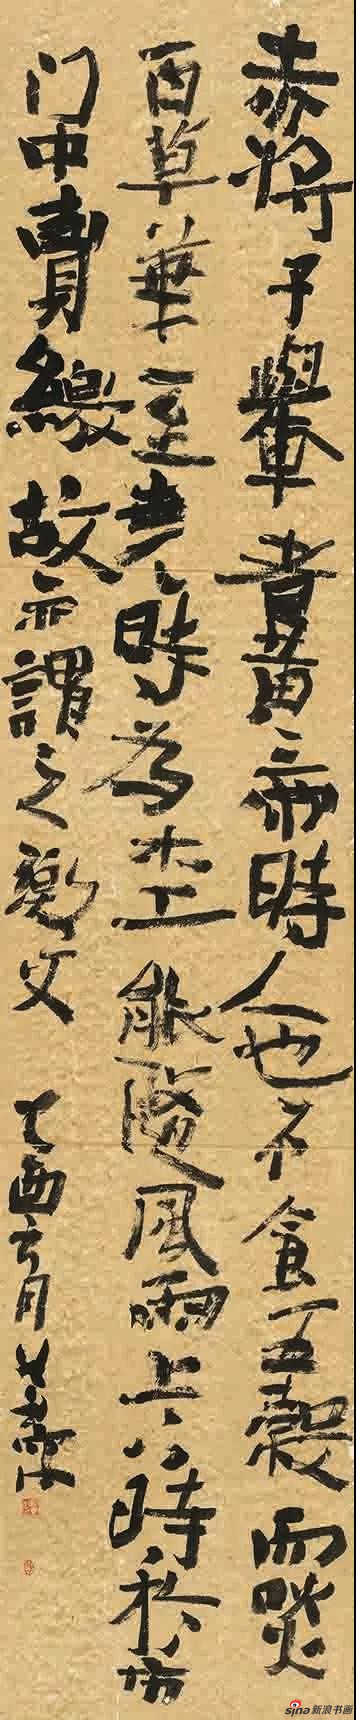 赤將子轝者黄帝時人也不食五穀而啖
百草華至尭時為木工能隨風雨上下時於市
门中賣繳故亦謂之繳父
乙酉六月
sina新浪书画